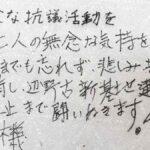 な抗議活動を
二人の無念な気持を
までも忘れず、悲しみを
し、辺野古新基地建
止まで闘いぬきます。